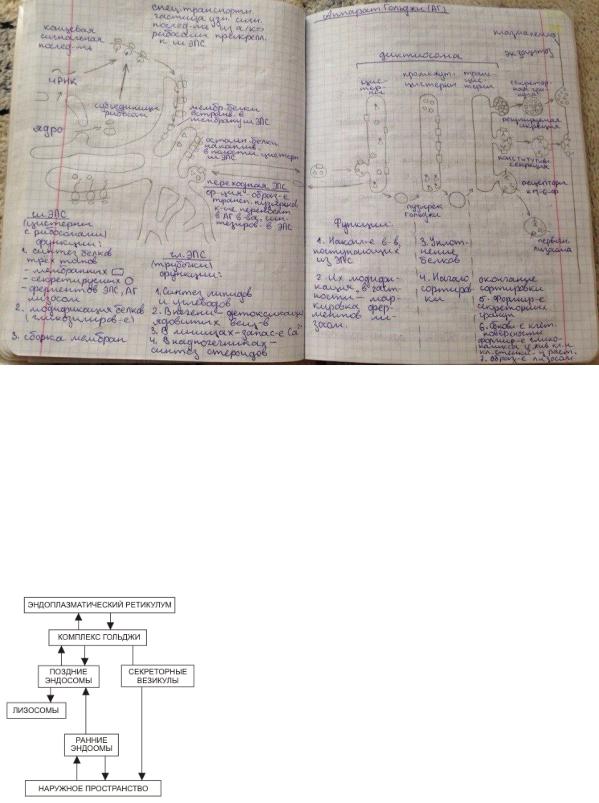 концевая
сигнальная
послед-ть
спец. транспортн.
частица узн. сигн.
рибосомы прикрепл.
к ш ЭПС
иРНК
субъединицы
рибосом
ядро
мембр. белки
встраив. в
мембрану ш ЭПС
остальн. белки
накаплив.
в полости цистерн
ш ЭПС
переходная ЭПС
в АГ в-ва, син-
тезиров. в ЭПС
ш. ЭПС
(цистерны
с рибосомами)
функции:
1. синтез белков
трёх типов
- мембранных
- секретируемых
- ферментов ЭПС, АГ
лизосом
2. модификация белков
(гликозилиров-е)
3. сборка мембран
гл. ЭПС
(трубочки)
функции:
1. Синтез липидов
и углеводов
2. В печени - детоксикация
ядовитых вещ-в
3. В мышцах - запас-е Ca
4. В надпочечниках -
синтез стероидов
Аппарат Гольджи (АГ)
плазмалемма
экзоцитоз
диктиосома
цис-
терны
промежут.
цистерны
транс
цис-
терны
секретор-
ная гра-
нула
регулируемая
секреция
конститутив.
секреция
рецепторы
пузырёк
Гольджи
первичн.
лизосома
Функции:
1. Накопл-е в-в,
поступающих
из ЭПС
2. Их модифи-
кация, в част-
ности - мар-
кировка фер-
ментов ли-
зосом.
3. Уплот-
нение
белков
4. Начало
сортиров-
ки
окончание
сортировки
5. Формир-е
секреторных
гранул
7. Образ-е лизосом
ЭНДОПЛАЗМАТИЧЕСКИЙ РЕТИКУЛУМ
КОМПЛЕКС ГОЛЬДЖИ
ПОЗДНИЕ
ЭНДОСОМЫ
СЕКРЕТОРНЫЕ
ВЕЗИКУЛЫ
ЛИЗОСОМЫ
РАННИЕ
ЭНДООМЫ
НАРУЖНОЕ ПРОСТРАНСТВО